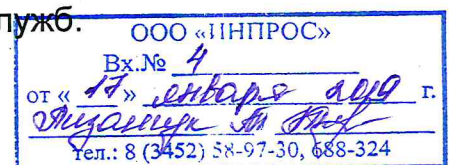 лужб.
ООО «ИНПРОС»
Вх.№ 4
от « 17 » января 2019 г.
тел.: 8 (3452) 58-97-30, 688-324